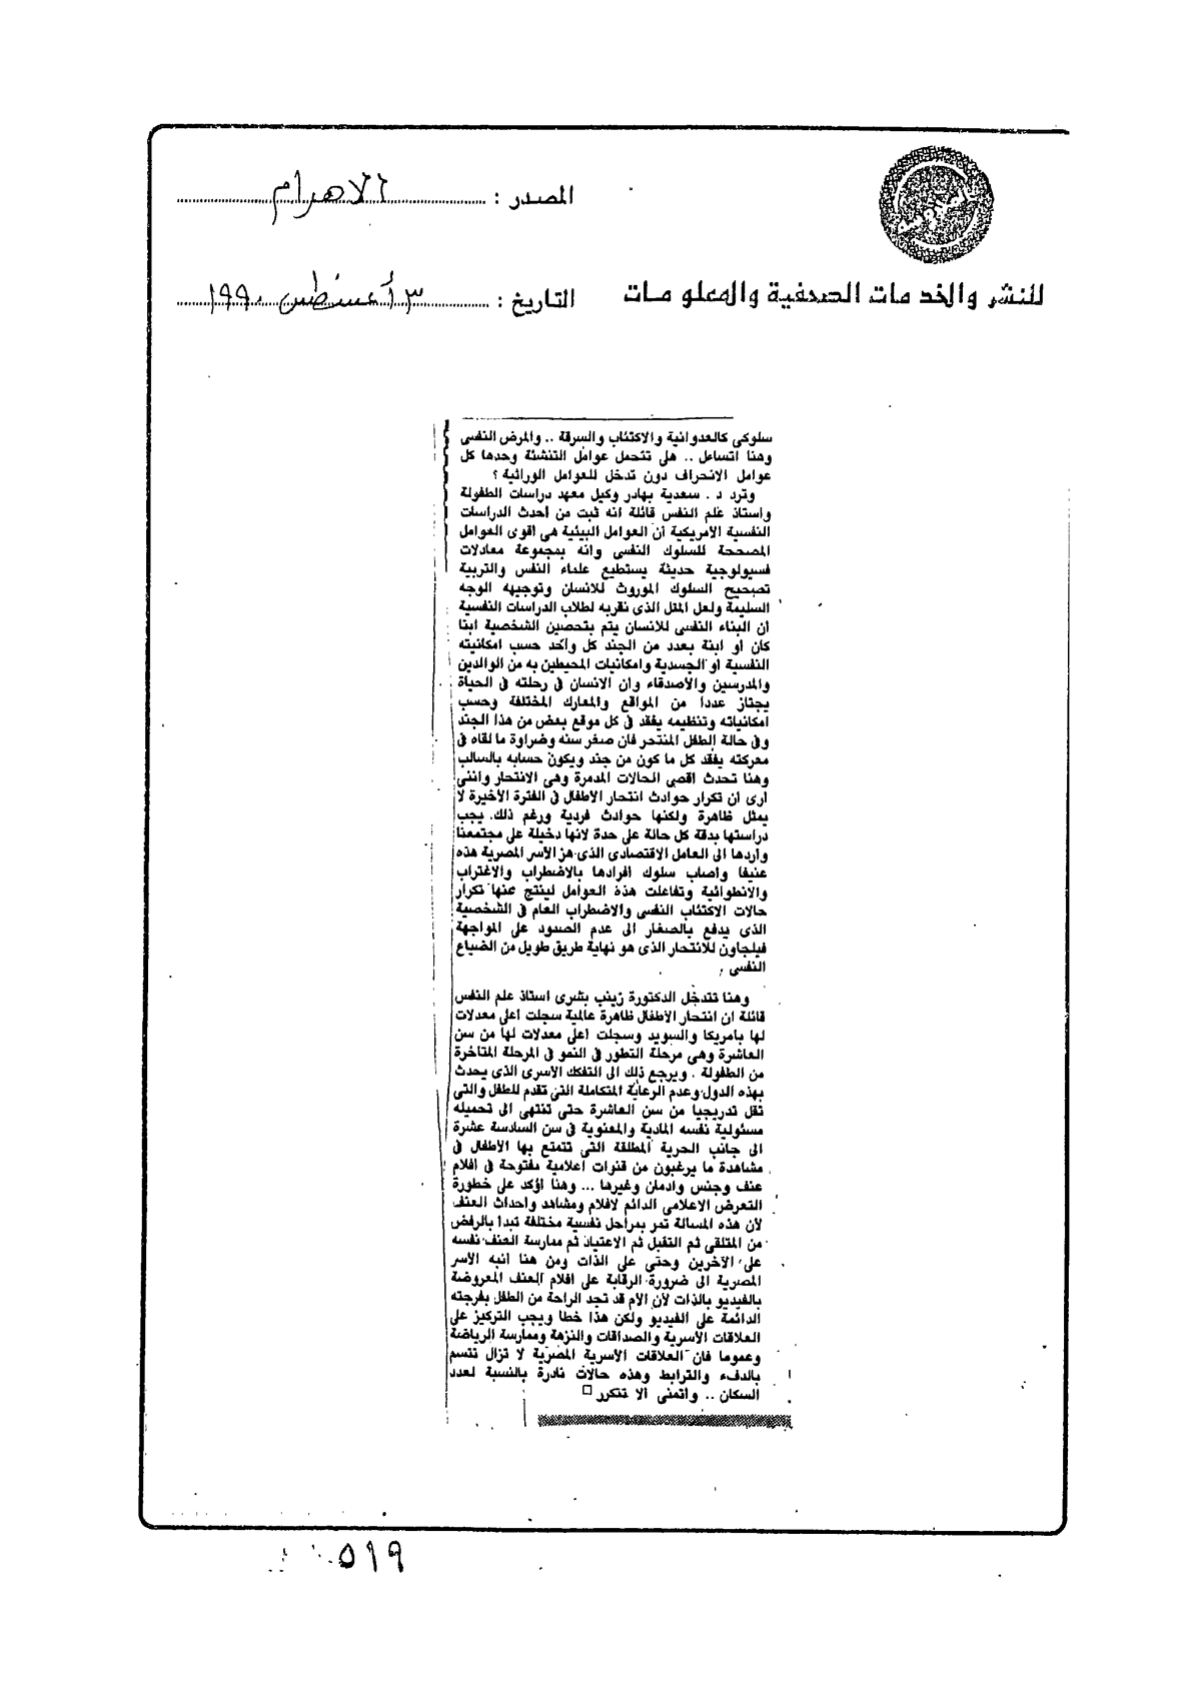 المصدر : الاهرام
للنشر والخدمات الصحفية والمعلومات
التاريخ : ٣ أغسطس ١٩٩٠
سلوكى كالعدوانية والاكتئاب والسرقة .. والمرض النفسى
وهنا اتساءل .. هل تتحمل عوامل التنشئة وحدها كل
عوامل الانحراف دون تدخل للعوامل الوراثية ؟
وترد د . سعدية بهادر وكيل معهد دراسات الطفولة
واستاذ علم النفس قائلة انه ثبت من احدث الدراسات
النفسية الامريكية أن العوامل البيئية هى اقوى العوامل
المصححة للسلوك النفسى وانه بمجموعة معادلات
فسيولوجية حديثة يستطيع علماء النفس والتربية
تصحيح السلوك الموروث للانسان وتوجيهه الوجه
السليمة ولعل المثل الذى نقربه لطلاب الدراسات النفسية
ان البناء النفسى للانسان يتم بتحصين الشخصية ابنا
كان او ابنة بعدد من الجند كل واحد حسب امكانيته
النفسية او الجسدية وامكانيات المحيطين به من الوالدين
والمدرسين والأصدقاء وان الانسان فى رحلته فى الحياة
يجتاز عددا من المواقع والمعارك المختلفة وحسب
امكانياته وتنظيمه يفقد فى كل موقع بعض من هذا الجند
وفى حالة الطفل المنتحر فان صغر سنه وضراوة ما لقاه فى
معركته يفقد كل ما كون من جند ويكون حسابه بالسالب
وهنا تحدث اقصى الحالات المدمرة وهى الانتحار واننى
ارى ان تكرار حوادث انتحار الاطفال فى الفترة الأخيرة لا
يمثل ظاهرة ولكنها حوادث فردية ورغم ذلك يجب
دراستها بدقة كل حالة على حدة لانها دخيلة على مجتمعنا
واردها الى العامل الاقتصادى الذى هز الأسر المصرية هذه
عنيفا واصاب سلوك أفرادها بالاضطراب والاغتراب
والانطوائية وتفاعلت هذة العوامل لينتج عنها تكرار
حالات الاكتئاب النفسى والاضطراب العام فى الشخصية
الذى يدفع بالصغار الى عدم الصمود على المواجهة
فيلجاون للانتحار الذى هو نهاية طريق طويل من الضياع
النفسى .
وهنا تتدخل الدكتورة زينب بشرى استاذ علم النفس
قائلة ان انتحار الأطفال ظاهرة عالمية سجلت اعلى معدلات
لها بامريكا والسويد وسجلت اعلى معدلات لها من سن
العاشرة وهى مرحلة التطور فى النمو فى المرحلة المتاخرة
من الطفولة . ويرجع ذلك الى التفكك الأسرى الذى يحدث
بهذه الدول وعدم الرعاية المتكاملة التى تقدم للطفل والتى
تقل تدريجيا من سن العاشرة حتى تنتهى الى تحميله
مسئولية نفسه المادية والمعنوية فى سن السادسة عشرة
الى جانب الحرية المطلقة التى تتمتع بها الأطفال فى
مشاهدة ما يرغبون من قنوات اعلامية مفتوحة فى افلام
عنف وجنس وادمان وغيرها ... وهنا أؤكد على خطورة
التعرض الاعلامى الدائم لافلام ومشاهد واحداث العنف
لأن هذه المسالة تمر بمراحل نفسية مختلفة تبدا بالرفض
من المتلقى ثم التقبل ثم الاعتياد ثم ممارسة العنف نفسه
على الآخرين وحتى على الذات ومن هنا انبه الأسر
المصرية الى ضرورة الرقابة على افلام العنف المعروضة
بالفيديو بالذات لأن الام قد تجد الراحة من الطفل بفرجته
الدائمة على الفيديو ولكن هذا خطا ويجب التركيز على
العلاقات الأسرية والصداقات والنزهة وممارسة الرياضة
وعموما فان العلاقات الأسرية المصرية لا تزال تتسم
بالدفء والترابط وهذه حالات نادرة بالنسبة لعدد
السكان .. واتمنى الا تتكرر □
٥١٩